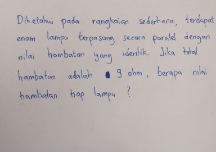 Diketahui pada rangkaian sederhana, terdapat
enam lampu terpasang secara paralel dengan
nilai hambatan yang identik. Jika total
hambatan adalah 9 ohm, berapa nilai
hambatan tiap lampu ?